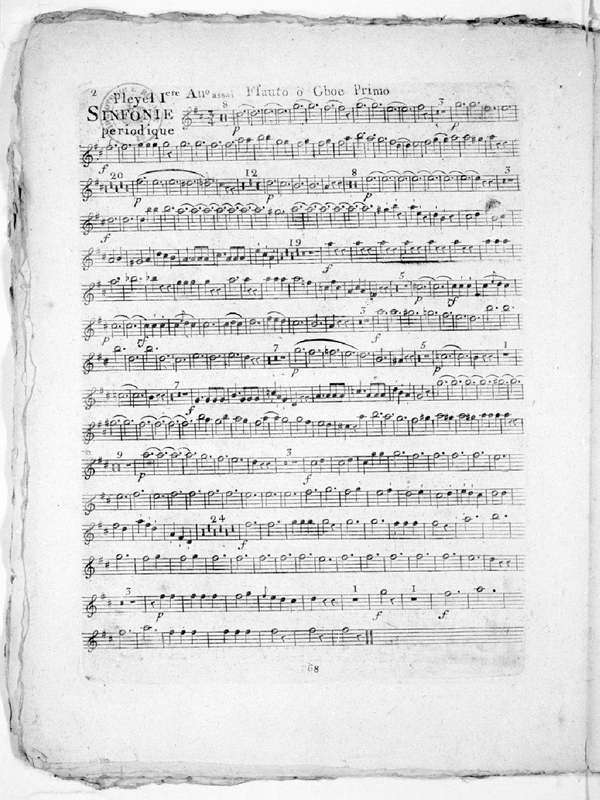 2 Pleyel Iere Allo assai Flauto o Oboe Primo
SINFONIE
periodique
8 p 3 p
f
20 p 12 p 8 p 3
f
19 f
5
p sf p sf
p sf 3 f
7 p 5 p 1
7 f
9 p 3 f
24 f
3 p f 1 f 1 f
68